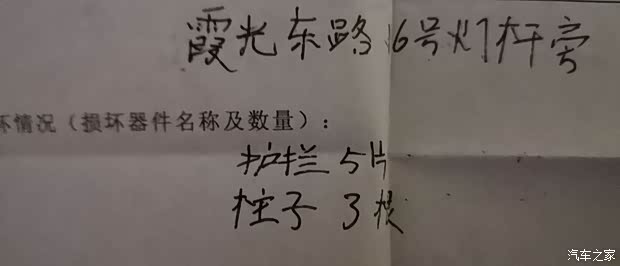 霞光东路16号灯杆旁
坏情况（损坏器件名称及数量）：
护栏 5片
柱子 3根
汽车之家